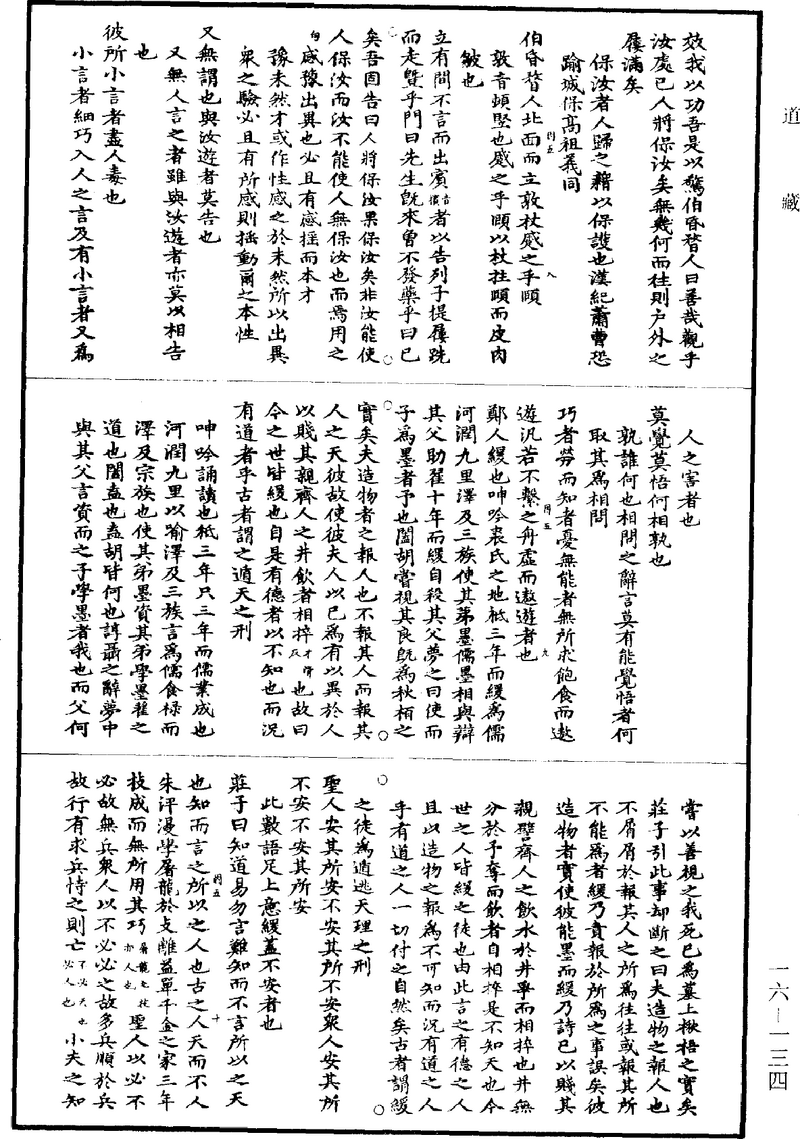 道藏
效我以功吾是以驚伯昏瞀人曰善哉觀乎
汝處已人將保汝矣無幾何而往則户外之
屨滿矣
保汝者人歸之藉以保護也漢紀蕭曹恐
踰城保高祖義同
伯昏瞀人北面而立敦杖蹙之乎頤
敦音頓竪也蹙之乎頤以杖拄頤而皮肉
皴也
立有間不言而出賓者以告列子提屨跣
而走暨乎門曰先生既來曾不發藥乎曰已
矣吾固告曰人將保汝果保汝矣非汝能使
人保汝而汝不能使人無保汝也而焉用之
感豫出異也必且有感摇而本才
豫未然才或作性感之於未然所以出異
衆之驗必且有所感則摇動爾之本性
又無謂也與汝遊者莫告也
又無人言之者雖與汝遊者亦莫以相告
也
彼所小言者盡人毒也
小言者細巧入人之言及有小言者又爲
人之害者也
莫覺莫悟何相孰也
孰誰何也相問之辭言莫有能覺悟者何
取其爲相問
巧者勞而知者憂無能者無所求飽食而遨
遊汎若不繫之舟虛而遨遊者也
鄭人緩也呻吟裘氏之地衹三年而緩爲儒
河潤九里澤及三族使其弟墨儒墨相與辯
其父助翟十年而緩自殺其父夢之曰使而
子爲墨者予也闔胡嘗視其良既爲秋栢之
實矣夫造物者之報人也不報其人而報其
人之天彼故使彼夫人以已爲有以異於人
以賤其親齊人之井飲者相捽也故曰
今之世皆緩也自是有德者以不知也而況
有道者乎古者謂之遁天之刑
呻吟誦讀也衹三年只三年而儒業成也
河潤九里以喻澤及三族言爲儒食禄而
澤及宗族也使其弟墨資其弟學墨翟之
道也闔盍也盍胡皆何也諄聶之辭夢中
與其父言資而之子學墨者我也而父何
嘗以善視之我死已爲墓上楸梧之實矣
莊子引此事却斷之曰夫造物之報人也
不屑屑於報其人之所爲往往或報其所
不能爲者緩乃責報於所爲之事誤矣彼
造物者實使彼能墨而緩乃詩已以賤其
親譬齊人之飲水於井爭而相捽也井無
分於予奪而飲者自相捽是不知天也今
世之人皆緩之徒也由此言之有德之人
且以造物之報爲不可知而況有道之人
乎有道之人一切付之自然矣古者謂緩
之徒爲遁逃天理之刑
聖人安其所安不安其所不安衆人安其所
不安不安其所安
此數語足上意緩蓋不安者也
莊子曰知道易勿言難知而不言所以之天
也知而言之所以之人也古之人天而不人
朱泙漫學屠龍於支離益單千金之家三年
技成而無所用其巧聖人以必不
必故無兵衆人以不必必之故多兵順於兵
故行有求兵恃之則亡小夫之知
一六—一三四